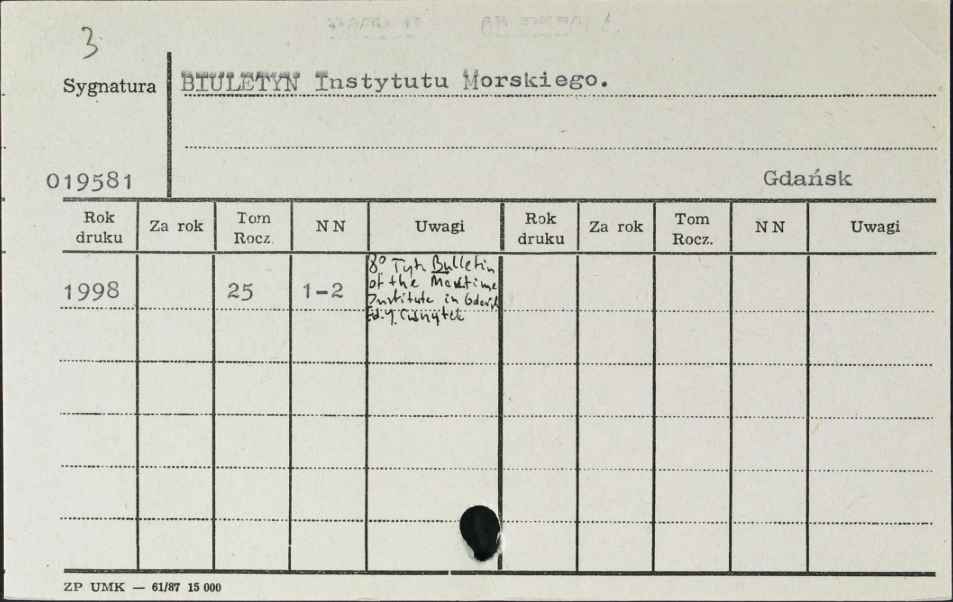 3
Sygnatura
BIULETYN Instytutu Morskiego.
019581
Gdańsk
Rok druku Za rok Tom Rocz. NN Uwagi Rok druku Za rok Tom Rocz. NN Uwagi
1998 25 1-2
8° Tyt. Bulletin
of the Maritime
Institute in Gdańsk
Ed. J.
ZP UMK — 61/87 15 000